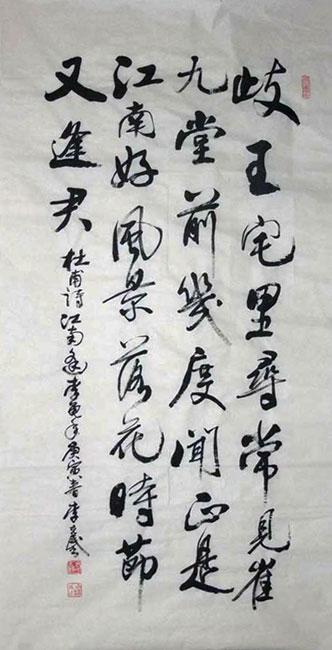 岐王宅里尋常見崔
九堂前幾度聞正是
江南好風景落花時節
又逢君
杜甫詩江南逢李龟年庚寅書李